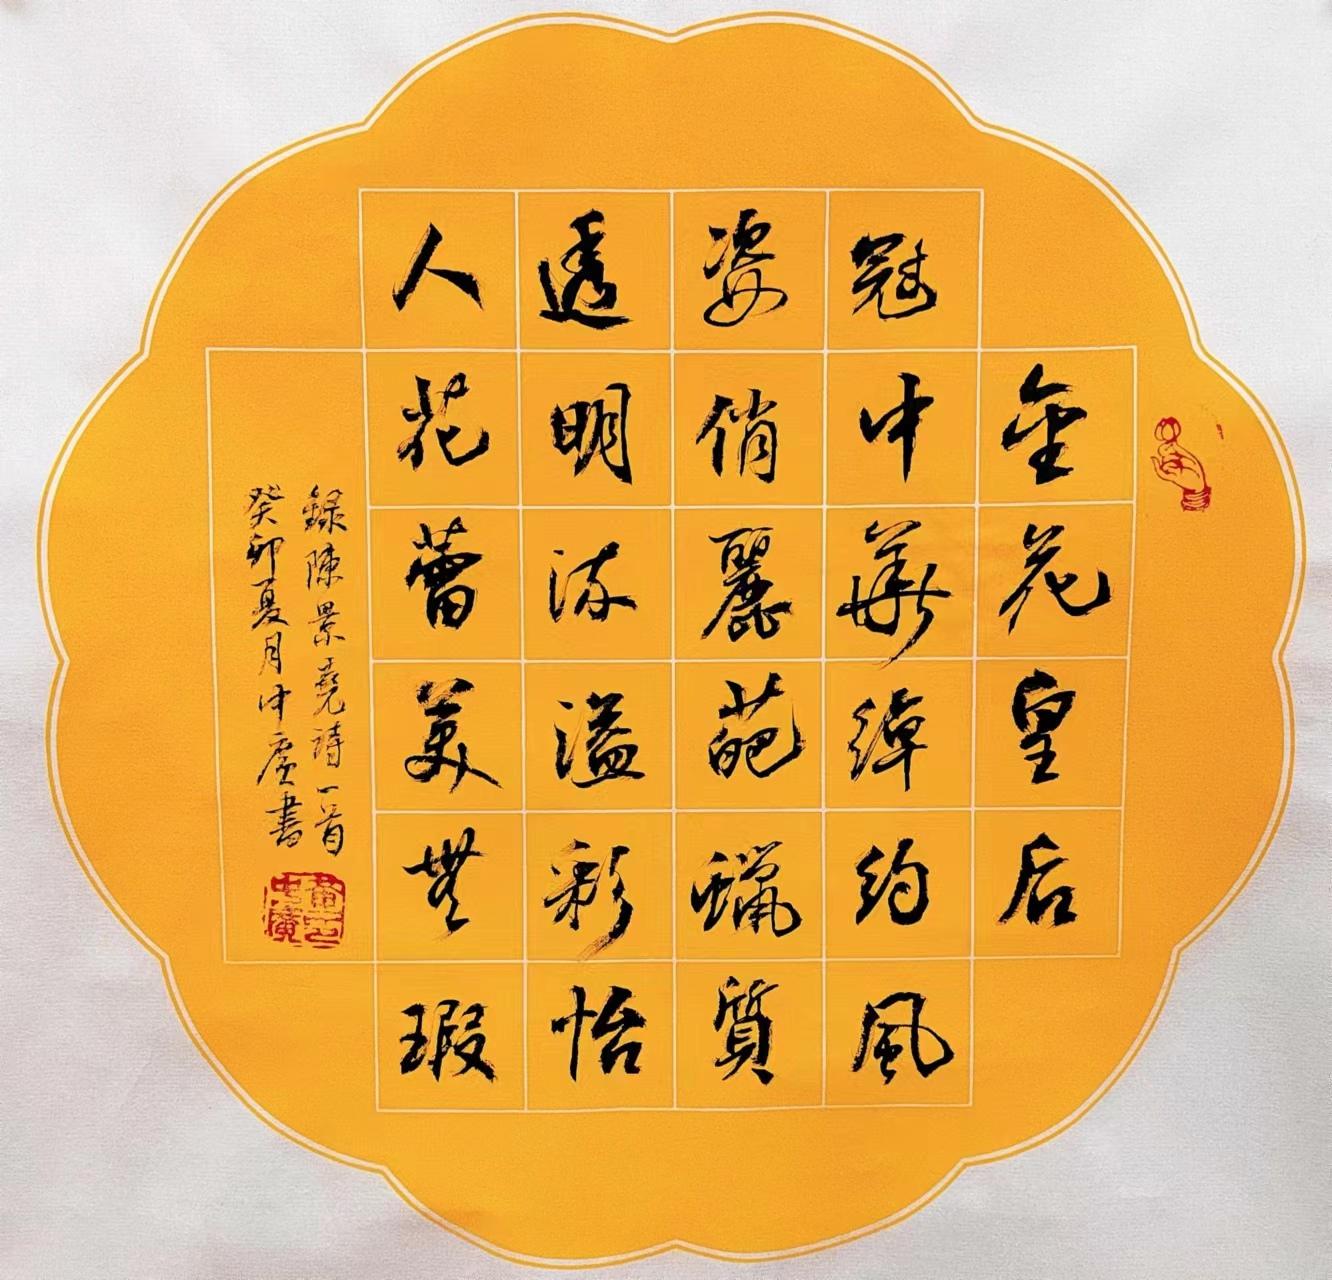 金花皇后
冠中華綽約風
姿俏麗葩蠟質
透明流溢彩怡
人花蕾美無瑕
錄陳景堯詩一首
癸卯夏月中廣書